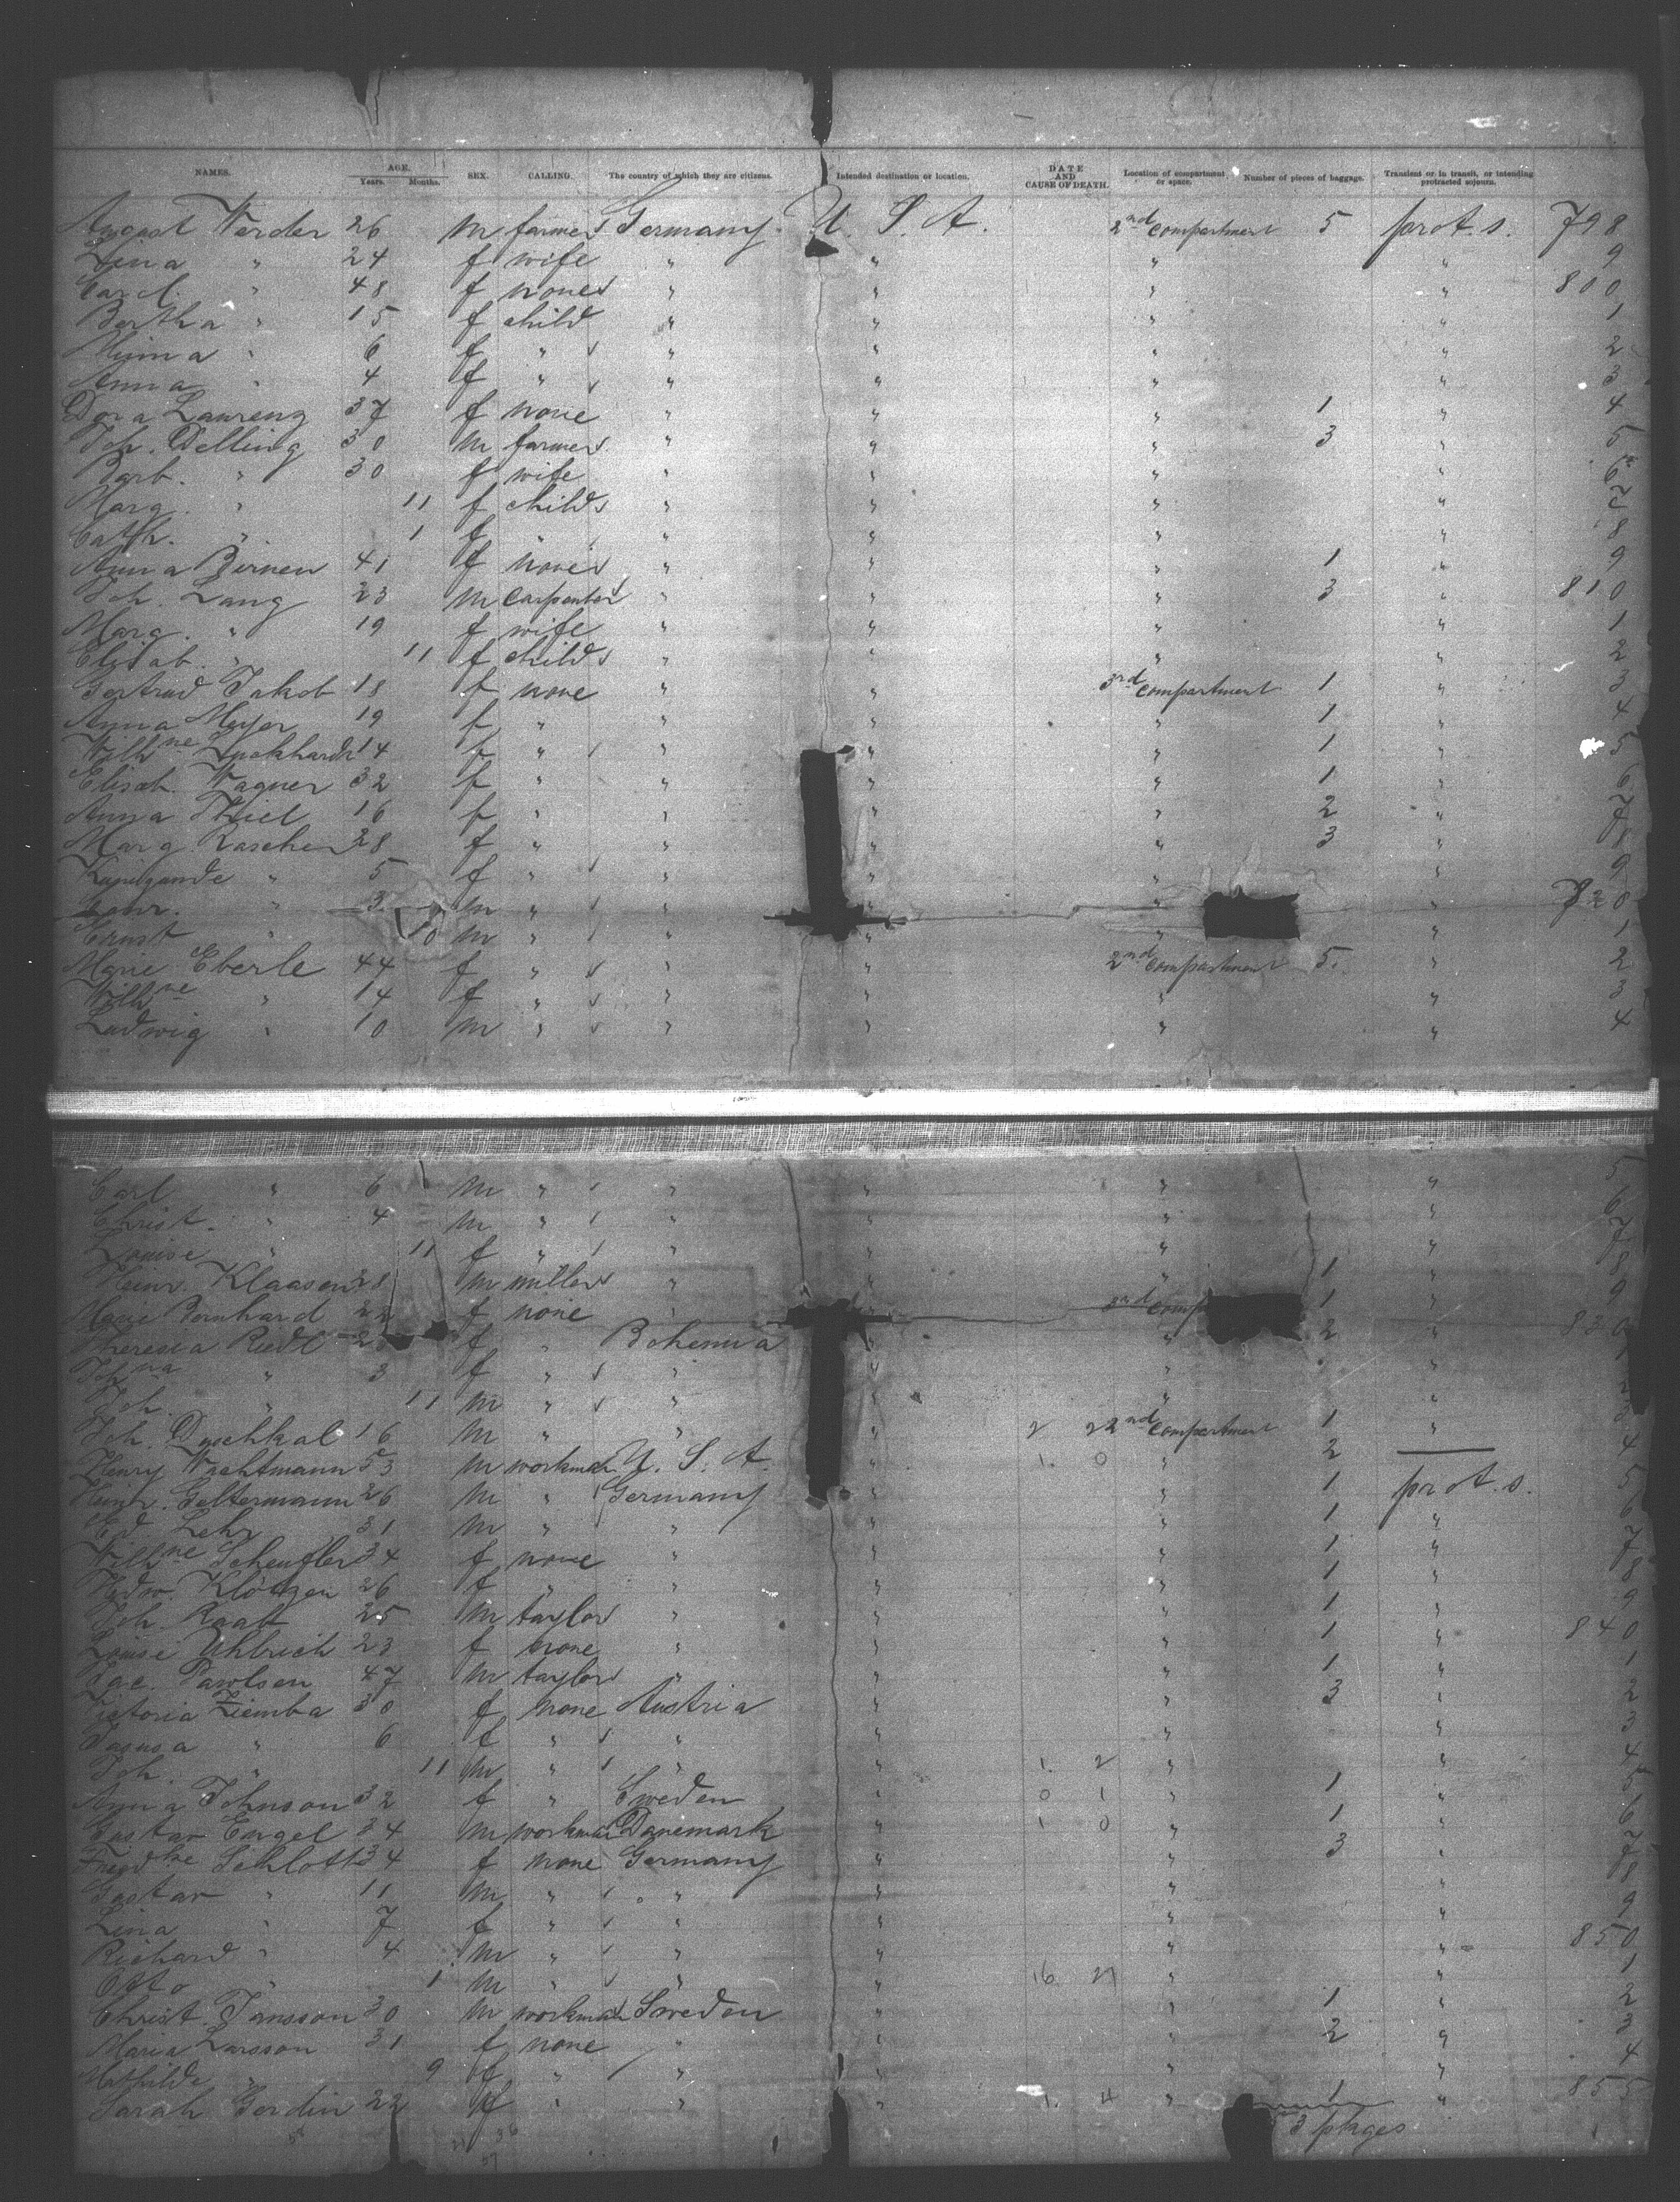 NAMES. AGE. Years. Months. SEX. CALLING. The country of which they are citizens. Intended destination or location. DATE AND CAUSE OF DEATH. Location of compartment or space. Number of pieces of baggage. Transient or in transit, or intending protracted sojourn.
August Werder 26 m farmer Germany U. S. A. 2nd compartment 5 prot. s. 798
Lina " 24 f wife " " " " 9
Carol. " 48 f none " " " " 800
Bertha " 15 f child " " " " 1
Minna " 6 f " " " " " 2
Anna " 4 f " " " " " 3
Dora Laurenz 37 f none " " " 1 " 4
Joh. Delling 30 m farmer " " " 3 " 5
Barb. " 30 f wife " " " " 6
Marg. " 11 f child " " " " 7
Cath. " 1 f " " " " " 8
Anna Birnen 41 f none " " " 1 " 9
Joh. Lang 23 m carpenter " " " 3 " 810
Marg. " 19 f wife " " " " 1
Elisab. " 11 f child " " " " 2
Gertrud Jakob 18 f none " " 3rd compartment 1 " 3
Anna Meyer 19 f " " " " 1 " 4
Wilhne Luckhardt 14 f " " " " 1 " 5
Elisab. Wagner 32 f " " " " 1 " 6
Anna Thiel 16 f " " " " 2 " 7
Marg. Rascher 28 f " " " " 3 " 8
Kunigunde " 5 f " " " " " 9
" 3 m " " " " 20
Ernst " 10 m " " " " " 1
Marie Eberle 44 f " " " 2nd compartment 5. " 2
Wilhne " 14 f " " " " " 3
Ludwig " 10 m " " " " " 4
Carl " 6 m " " " " " 5
Christ. " 4 m " " " " " 6
Louise " 11 f " " " " " 7
Heinr. Klaasen 28 m miller " " " 1 " 8
Marie Bernhard 22 f none " " 3rd comp 1 " 9
Theresia Riedl 2 f " Bohemia " 2 " 830
Johna " 3 f " " " " "
Joh. " 11 m " " " " " 2
Joh. Duschkal 16 m " " " 2 2 2nd compartment 1 " 3
Henry Wachtmann 53 m workman U. S. A. 1. 0 " 2 — 4
Heinr. Geltermann 26 m " Germany " " 1 prot. s. 5
Ed. Lehr 31 m " " " " 1 " 6
Wilhne Scheufler 34 f none " " " 1 " 7
Hedw. Klötzen 26 f " " " " 1 " 8
Joh. Raab 25 m taylor " " " 1 " 9
Louise Uhlrich 23 f none " " " 1 " 840
Jac. Pawlsen 47 m taylor " " " 1 " 1
Victoria Ziemba 30 f none Austria " " 3 " 2
" 6 f " " " " " 3
Joh. " 11 m " " " 1. 2 " " 4
Anna Johnson 32 f " Sweden " 0 1 " 1 " 5
Gustav Engel 34 m workman Danemark " 1 0 " 1 " 6
Friedke Schlott 34 f none Germany " " 3 " 7
Gustav " 11 m " " " " " 8
Lina " 7 f " " " " " 9
Richard " 4 m " " " " " 850
Otto " 1 m " " " 16 21 " " 1
Christ. Jansson 30 m workman Sweden " " 1 " 2
Maria Larsson 31 f none " " " 2 " 3
Mathilde " 9 f " " " " " 4
Sarah Gerdin 22 f " " " 1. 4 " 1 " 855
3 pkges